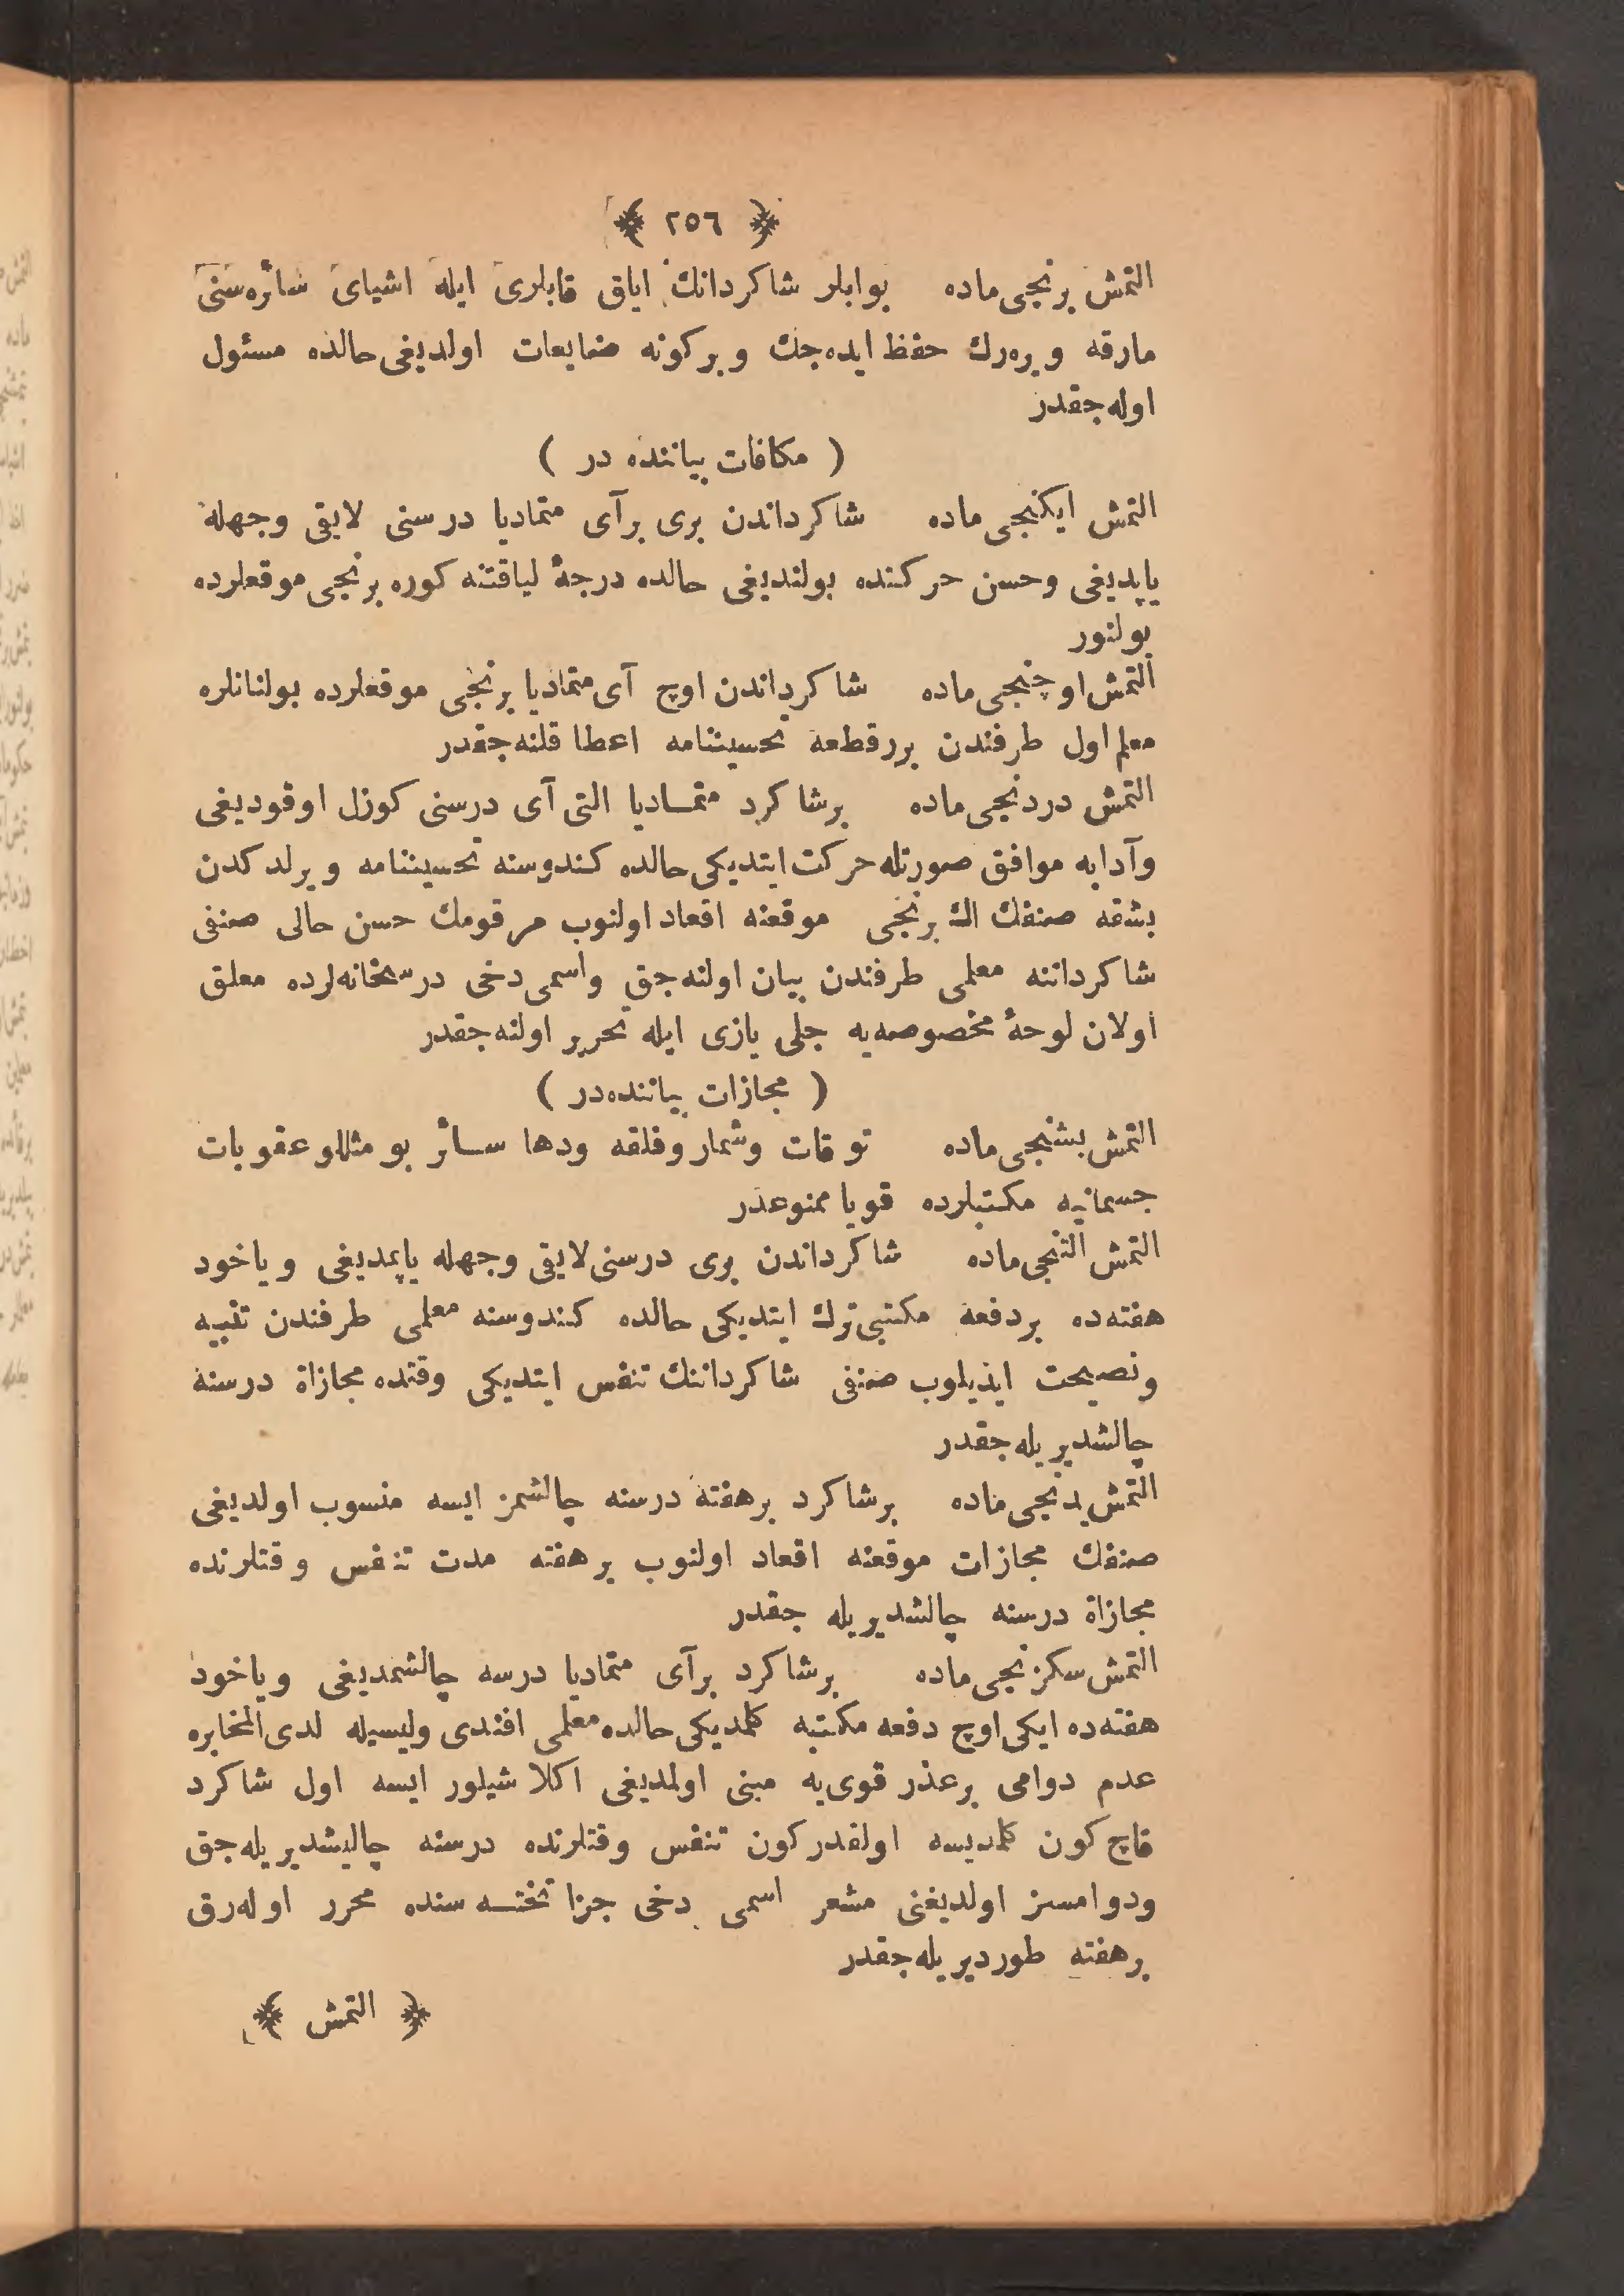 ﴿ ٢٥٦ ﴾
التمش برنجی ماده بوابلر شاکردانك ایاق قابلری ایله اشیای سائره‌سنی
مارقه ویره‌رك حفظ ایده‌جك وبر کونه ضایعات اولدیغی حالده مسئول
اوله‌جقدر
( مکافات بیاننده در )
التمش ایکنجی ماده شاکرداندن بری برآی متمادیا درسنی لایقی وجهله
یاپدیغی وحسن حرکتده بولندیغی حالده درجهٔ لیاقتنه کوره برنجی موقعلرده
بولنور
التمش اوچنجی ماده شاکرداندن اوچ آی متمادیا برنجی موقعلرده بولنانلره
معلم اول طرفندن بررقطعه تحسیننامه اعطا قلنه‌جقدر
التمش دردنجی ماده برشاکرد متمادیا التی آی درسنی کوزل اوقودیغی
وآدابه موافق صورتله حرکت ایتدیکی حالده کندوسنه تحسیننامه ویرلدکدن
بشقه صنفك اك برنجی موقعنه اقعاد اولنوب مرقومك حسن حالی صنفی
شاکرداننه معلمی طرفندن بیان اولنه‌جق واسمی دخی درسخانه‌لرده معلق
اولان لوحهٔ مخصوصه‌یه جلی یازی ایله تحریر اولنه‌جقدر
( مجازات بیاننده‌در )
التمش بشنجی ماده توقات وشمار وفلقه ودها سائر بو مثللو عقوبات
جسمانیه مکتبلرده قویا ممنوعدر
التمش التنجی ماده شاکرداندن بری درسنی لایقی وجهله یاپمدیغی ویاخود
هفته‌ده بردفعه مکتبی ترك ایتدیکی حالده کندوسنه معلمی طرفندن تنبیه
ونصیحت ایدیلوب صنفی شاکرداننك تنفس ایتدیکی وقتده مجازاة درسنه
چالشدیریله‌جقدر
التمش یدنجی ماده برشاکرد برهفته درسنه چالشمز ایسه منسوب اولدیغی
صنفك مجازات موقعنه اقعاد اولنوب برهفته مدت تنفس وقتلرنده
مجازاة درسنه چالشدیریله جقدر
التمش سکزنجی ماده برشاکرد برآی متمادیا درسه چالشمدیغی ویاخود
هفته‌ده ایکی اوچ دفعه مکتبه کلمدیکی حالده معلمی افندی ولیسیله لدی المخابره
عدم دوامی برعذر قوی‌یه مبنی اولمدیغی اکلاشیلور ایسه اول شاکرد
قاچ کون کلمدیسه اولقدر کون تنفس وقتلرنده درسنه چالیشدیریله‌جق
ودوامسز اولدیغنی مشعر اسمی دخی جزا تخته‌سنده محرر اوله‌رق
برهفته طوردیریله‌جقدر
﴿ التمش ﴾